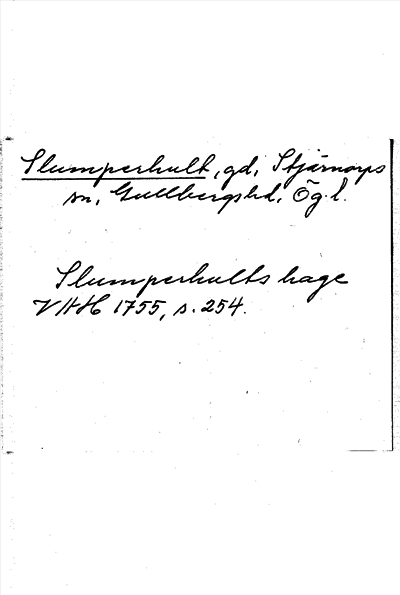 Slumperhult, gd, Stjärnorps
sn, Gullbergshd, Ög. l.
Slumperhults hage
VHH 1755, s. 254.